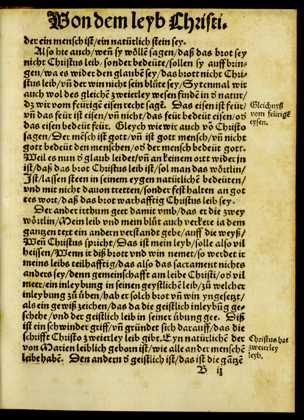 Von dem leyb Christi.
der ein mensch ist/ein natürlich stein sey.
Also hie auch/weñ sy wöllē sagen/daß das brot sey
nicht Christus leib/sonder bedeüte/sollen sy auff brin-
gen/wa es wider den glaubē sey/das brott nicht Chri-
stus leib/vñ der win nicht sein blůte sey/Sytenmal wir
auch wol des gleichē zweierley wesen findē in ð natur/
dz wir vom feürigē eisen recht sagē. Das eisen ist feür/
vñ das feür ist eisen/vñ nicht/das feür bedeüt eisen/oð
das eisen bedeüt feür. Gleych wie wir auch vō Christo
sagen/Der mensch ist gott/vñ ist gott mensch/vñ nicht
gott bedeüt den menschen/oð der mensch bedeüt gott.
Weil es nun ð glaub leidet/vñ an keinem ortt wider in
ist/daß das brot Christus leib ist/sol man das wörtlin/
Ist/lassen stein in seinem eygen natürlichē bedeütten/
vnd mit nicht dauon tretten/sonder fest halten an got
tes wort/daß das brot warhafftig Christus leib sey.
Der ander irthum geet damit vmb/das er die zwey
wörtlin/Mein leib vnd mein blůt auch verkere in dem
gantzen text ein andern verstand gebe/auff die weyß/
Weñ Christus spricht/Das ist mein leyb/solle also vil
heissen/Wenn ir diß brott vnd win nemet/so werdet ir
meins leibs teilhafftig/das also das sacrament nichts
anders sey/denn gemeinschafft am leibe Christi/oð vil
meer/ein inleybung in seinen geystlichē leib/zů welcher
inleybung zů ūben/hab er solch brot vñ win yngesetzt/
als ein gewiß zeichen/das da die geistlich inleybūg ge
schehe/vnd der geistlich leib in seiner übung gee. Diß
ist ein schwinder griff/vñ gründet sich darauff/das die
schrifft Christo zweierley leib gibt. Eyn natürlichē der
von Marien leiblich gborn ist/wie alle ander menschē
leibe habē. Den andern ð geistlich ist/das ist die gātze
B ij
Gleichnyß
vom feürigē
eysen.
Christus hat
zweierley
leyb.